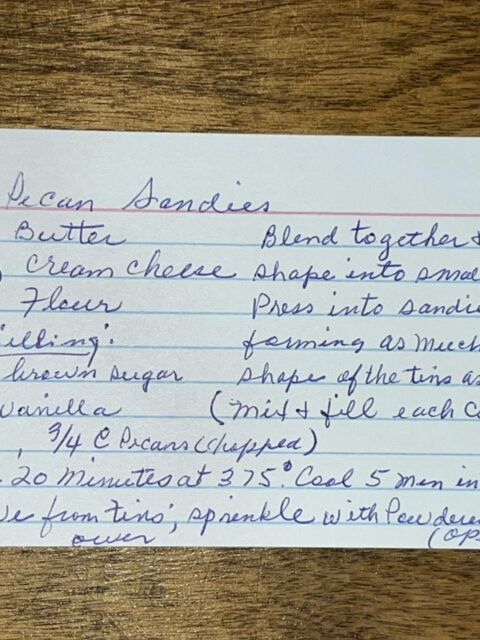 Pecan Sandies
Butter Blend together &
cream cheese shape into smal
Flour Press into sandie
illing: forming as much
brown sugar shape of the tins as
vanilla (Mix & fill each c
, 3/4 C Pecans (chopped)
20 Minutes at 375° Cool 5 min in
ve from tins; sprinkle with Powdere
over (op